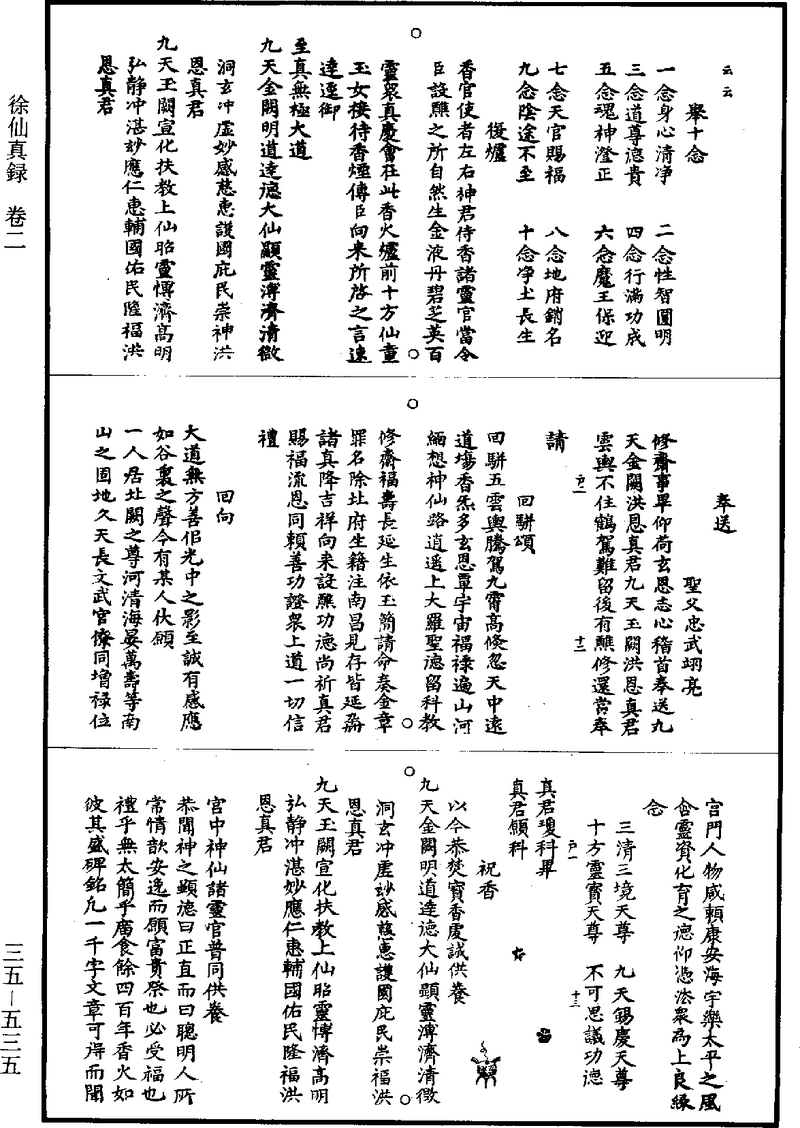 徐仙真録　卷二
三五—五三五
云云
舉十念
一念身心清净　二念性智圓明
三念道尊德貴　四念行滿功成
五念魂神澄正　六念魔王保迎
七念天官賜福　八念地府銷名
九念陰途不至　十念净土長生
復爐
香官使者左右神君侍香諸靈官當令
臣設醮之所自然生金液丹碧芝英百
靈衆真慶會在此香火爐前十方仙童
玉女接待香煙傳臣向来所啓之言速
達逕御
至真無極大道
九天金闕明道達德大仙顯靈溥濟清微
洞玄冲虛妙感慈惠護國庇民崇神洪
恩真君
九天玉闕宣化扶教上仙昭靈愽濟高明
弘静冲湛妙應仁惠輔國佑民隆福洪
恩真君
奉送
聖父忠武翊亮
修齋事畢仰荷玄恩志心稽首奉送九
天金闕洪恩真君九天玉闕洪恩真君
雲輿不住鶴駕難留後有醮修還當奉
請
回駢頌
回駢五雲輿騰駕九霄高倐忽天中遠
道場香炁多玄恩覃宇宙福禄遍山河
緬想神仙路逍遥上大羅聖德留科教
修齋福壽長延生依玉簡請命奏金章
罪名除北府生籍注南昌見存皆延壽
諸真降吉祥向来設醮功德尚祈真君
賜福流恩同賴善功證衆上道一切信
禮
回向
大道無方善但光中之影至誠有感應
如谷裏之聲今有某人伏願
一人居北闕之尊河清海晏萬壽等南
山之固地久天長文武官僚同增禄位
宫門人物咸賴康安海宇樂太平之風
含靈資化育之德仰憑衆爲上良緣
念
三清三境天尊　九天錫慶天尊
十方靈寶天尊　不可思議功德
十二
十三
真君瓊科畢
真君願科
祝香
以今恭焚寳香虔誠供養
九天金闕明道達德大仙顯靈溥濟清微
洞玄冲虛妙感慈惠護國庇民崇福洪
恩真君
九天玉闕宣化扶教上仙昭靈愽濟高明
弘静冲湛妙應仁惠輔國佑民隆福洪
恩真君
宫中神仙諸靈官普同供養
恭聞神之顯德曰正直而曰聰明人所
常情歆安逸而願富貴祭也必受福也
禮乎無太簡乎廟食餘四百年香火如
彼其盛碑銘凢一千字文章可得而聞